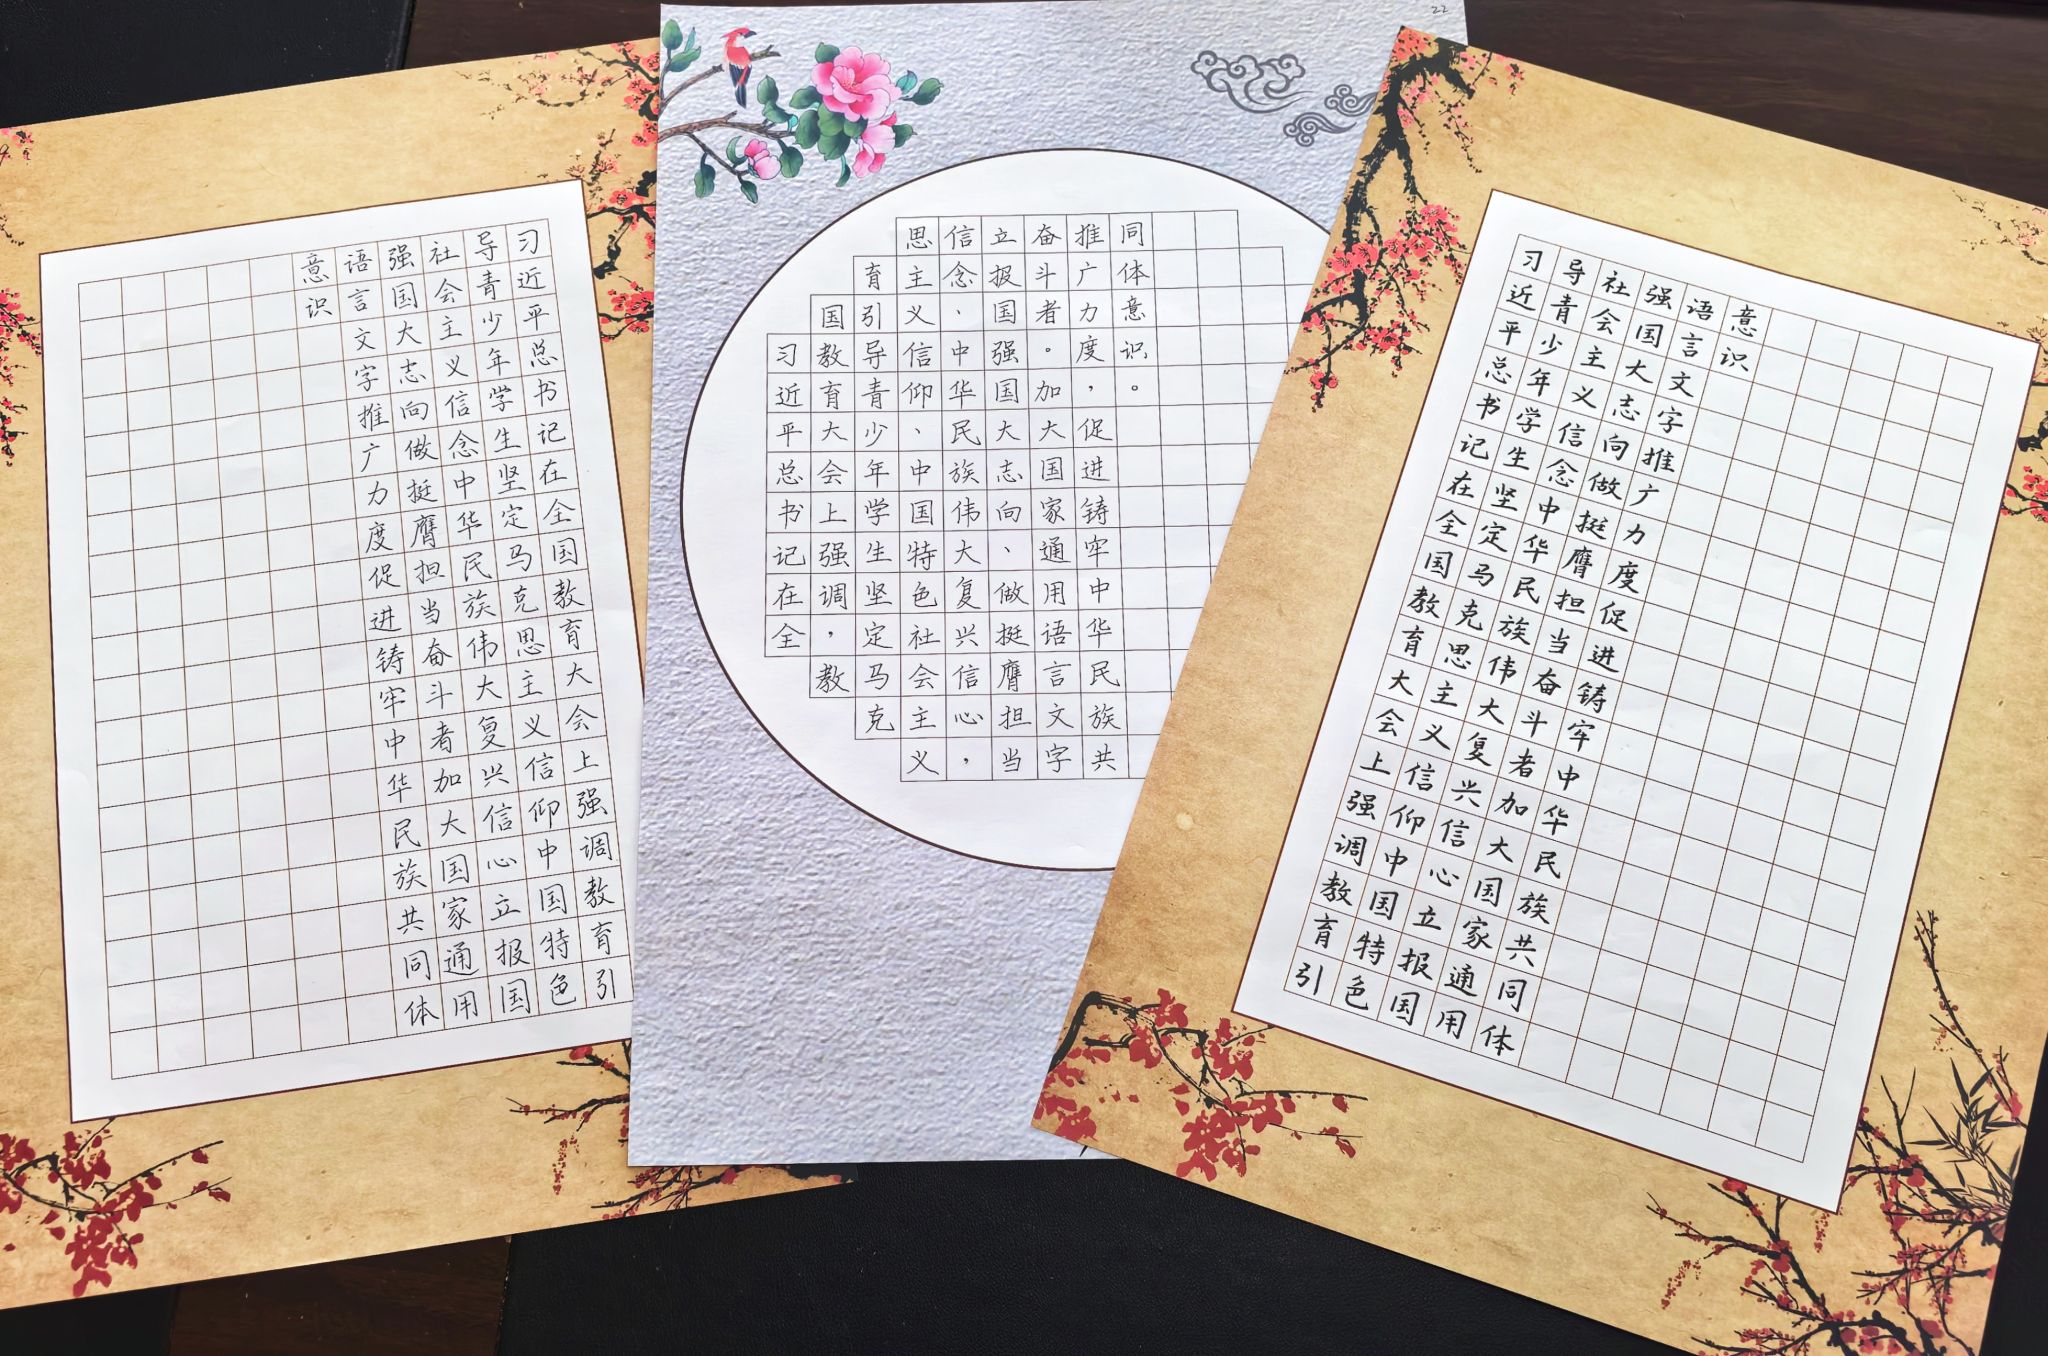 习近平总书记在全国教育大会上强调教育引
导青少年学生坚定马克思主义信仰中国特色
社会主义信念中华民族伟大复兴信心立报国
强国大志向做挺膺担当奋斗者加大国家通用
语言文字推广力度促进铸牢中华民族共同体
意识
22
习近平总书记在全
国教育大会上强调，教
育引导青少年学生坚定马克
思主义信仰、中国特色社会主义
信念、中华民族伟大复兴信心，
立报国强国大志向、做挺膺担当
奋斗者。加大国家通用语言文字
推广力度，促进铸牢中华民族共
同体意识。
习近平总书记在全国教育大会上强调教育引
导青少年学生坚定马克思主义信仰中国特色
社会主义信念中华民族伟大复兴信心立报国
强国大志向做挺膺担当奋斗者加大国家通用
语言文字推广力度促进铸牢中华民族共同体
意识